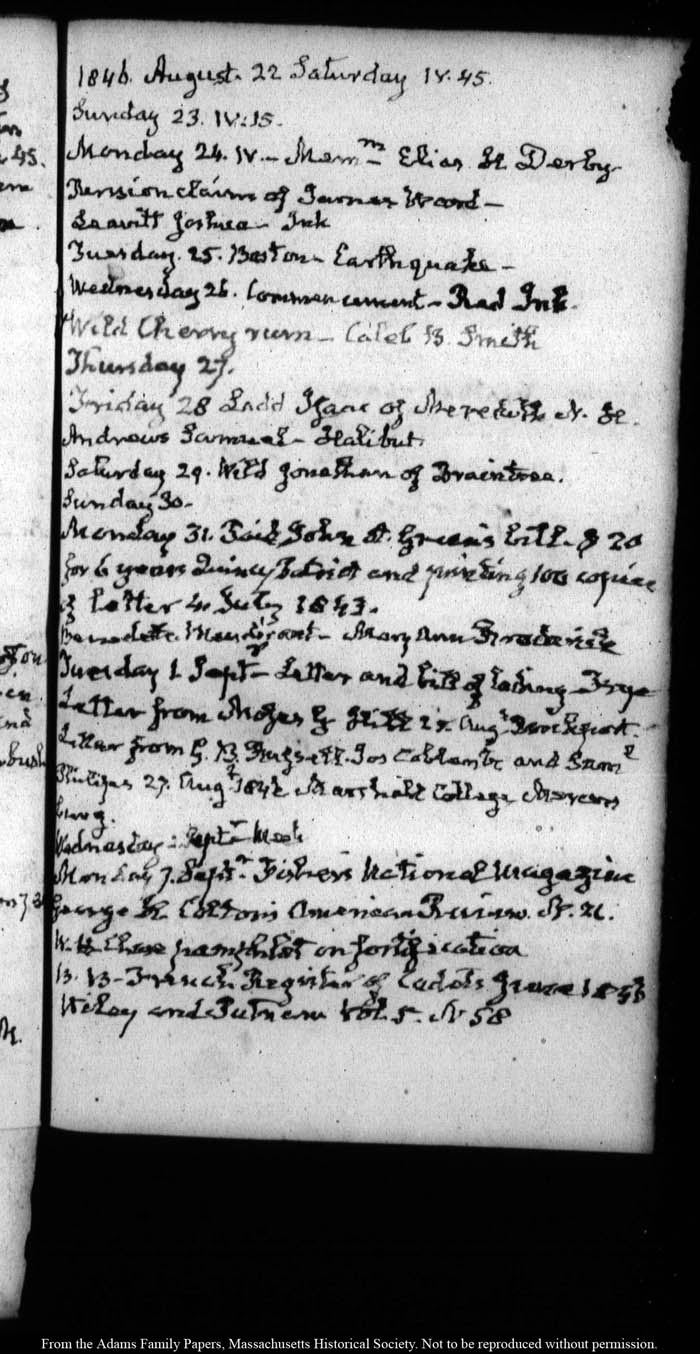 1846. August. 22 Saturday IV. 45.
Sunday 23. IV:15.
Monday 24. IV— Mem.m— Elias H Derby
Pension claim of James Wood—
Leavitt Joshua— Ink
Tuesday. 25. Boston— Earthquake—
Wednesday 26. Commencement— Red Ink.
Wild Cherry rum— Caleb B. Smith
Thursday 27.
Friday 28 Ladd Isaac of Meredith N. H.
Andrews Samuel— Halibut
Saturday 29. Wild Jonathan of Braintree.
Sunday 30—
Monday 31. Paid John A. Green's bill— $ 20
for 6 years Quincy Patriot and printing 100 copies
of letter 4. July 1843.
Mary Ann
Tuesday 1 Septr— Letter and bill of lading—
Letter from Moses G 27. Augt
Letter from G. B. Jos and Saml
27. Augt Marshall College

Wednesday Septr
Monday 7. Septr— Fisher's National Magazine
George H. Colton's American Review. N.
W. H Chase pamphlet on fortification
B. B— French. Register of Cadets June 1846
Wiley and Putnam Vol. 5. N 58
45.
From the Adams Family Papers, Massachusetts Historical Society. Not to be reproduced without permission.